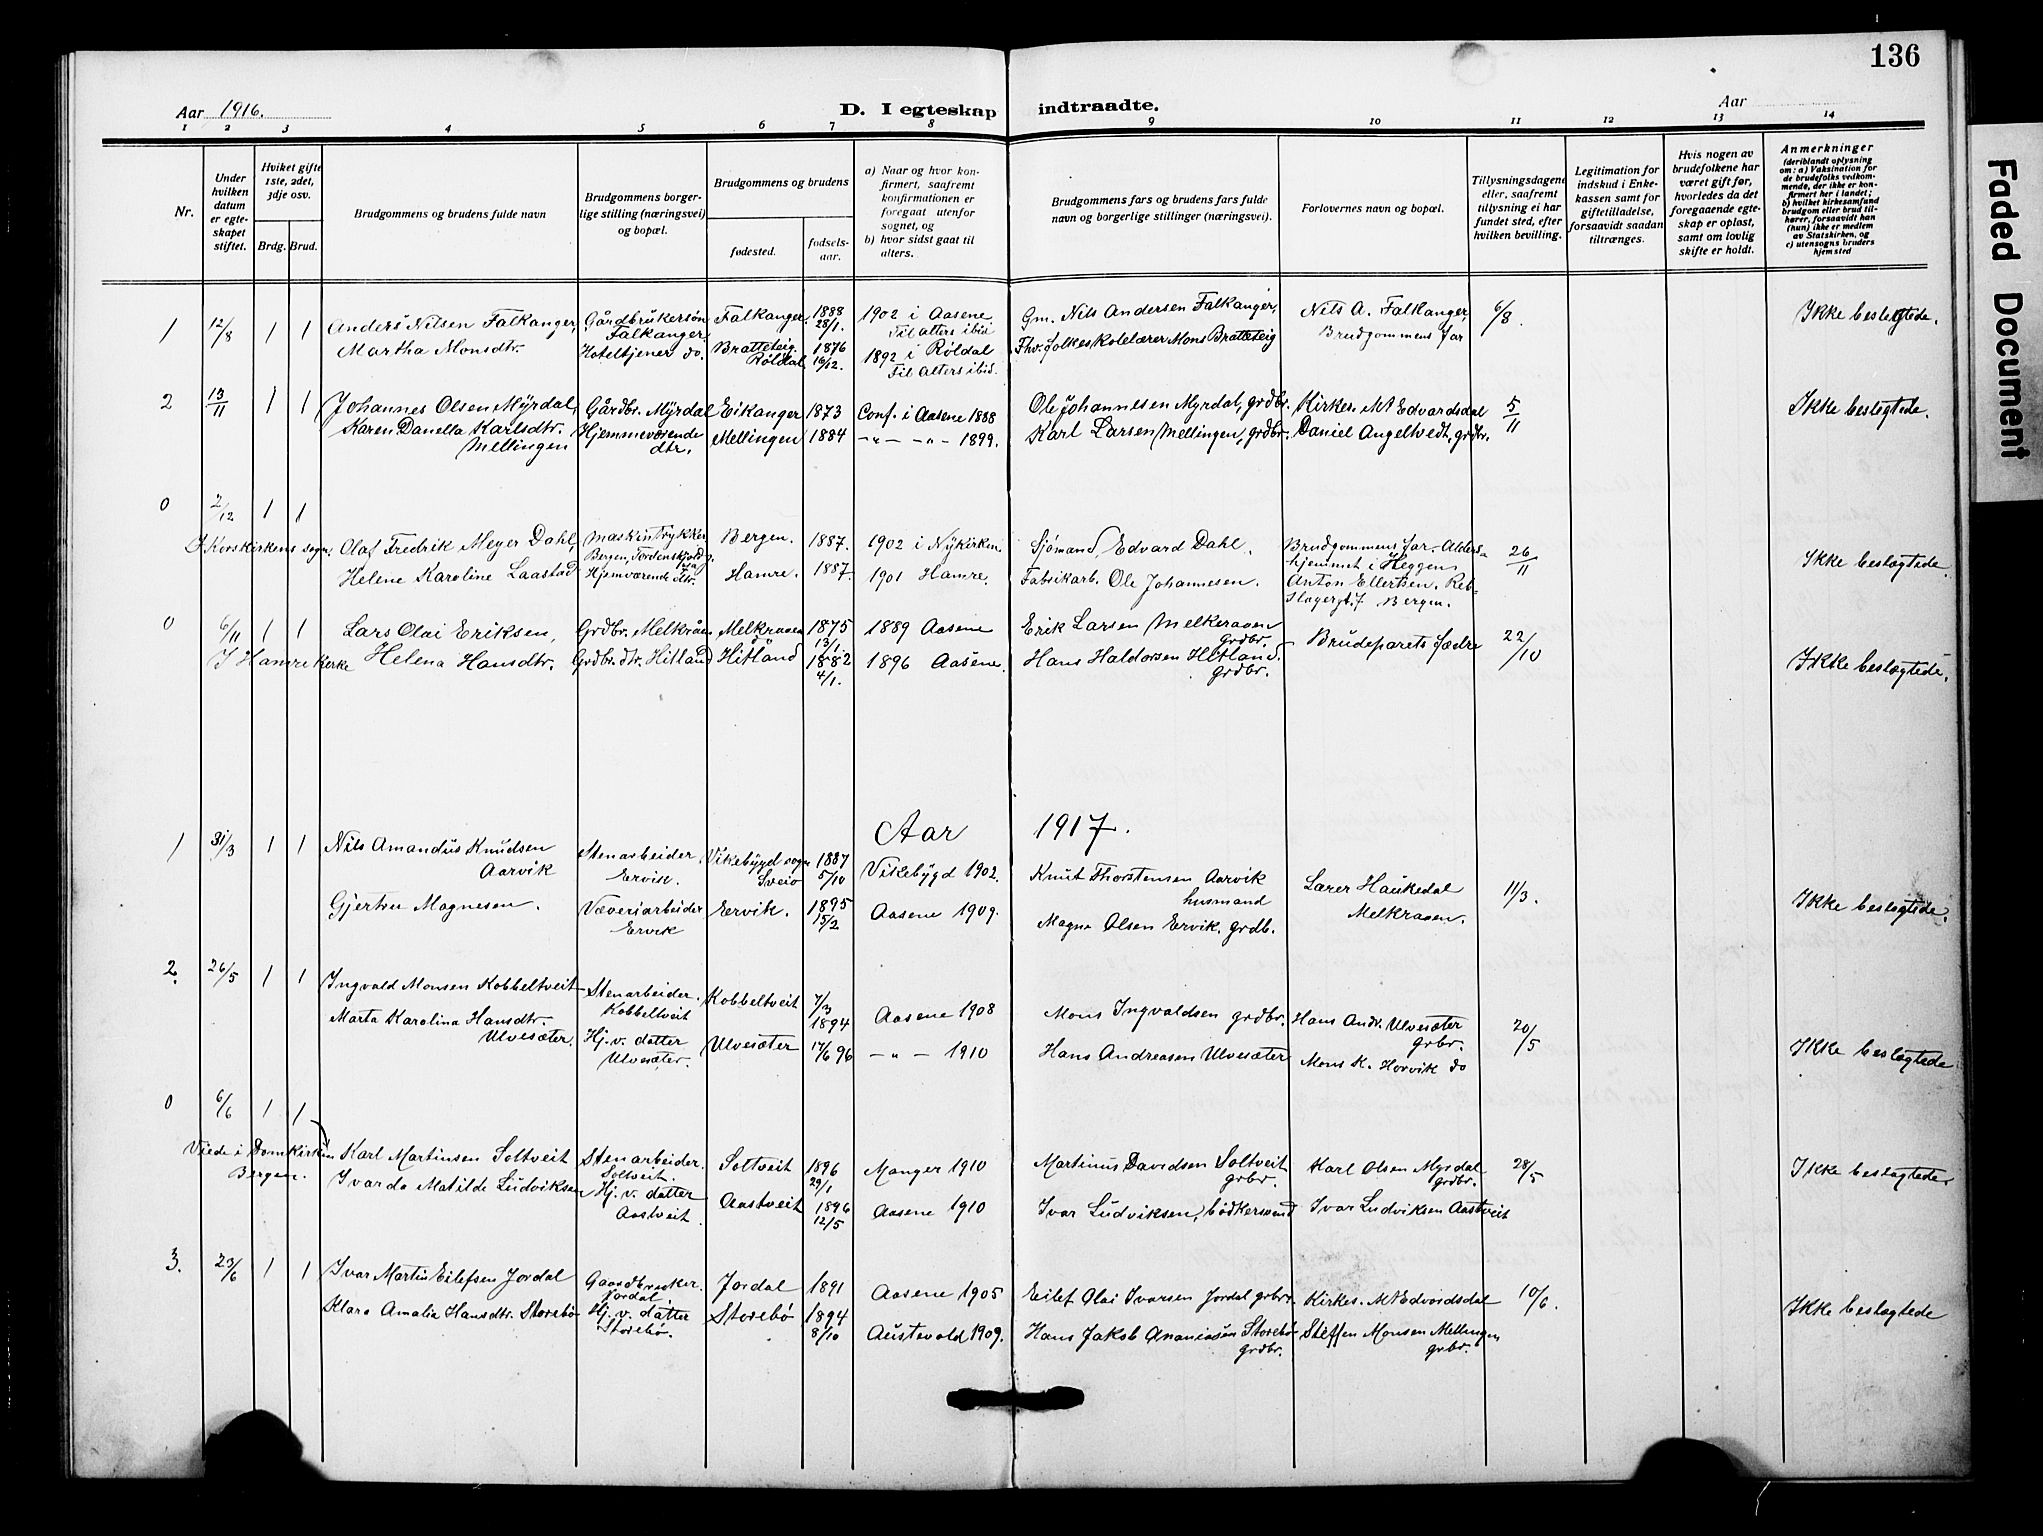 136
Faded Document
Aar 1916.
D. I egteskap indtraadte.
Aar
1 2 3 4 5 6 7 8 9 10 11 12 13 14
Nr.
Under hvilken datum er egteskapet stiftet.
Hviket gifte 1ste, 2det, 3dje osv.
Brdg. Brud.
Brudgommens og brudens fulde navn
Brudgommens borgerlige stilling (næringsvei) og bopæl.
Brudgommens og brudens
fødested.
fødselsaar.
a) Naar og hvor konfirmert, saafremt konfirmationen er foregaat utenfor sognet, og
b) hvor sidst gaat til alters.
Brudgommens fars og brudens fars fulde navn og borgerlige stillinger (næringsvei).
Forlovernes navn og bopæl.
Tillysningsdagene eller, saafremt tillysning ei har fundet sted, efter hvilken bevilling.
Legitimation for indskud i Enkekassen samt for giftetilladelse, forsaavidt saadan tiltrænges.
Hvis nogen av brudefolkene har været gift før, hvorledes da det foregaaende egteskap er opløst, samt om lovlig skifte er holdt.
Anmerkninger
(deriblandt oplysning om: a) Vaksination for de brudefolks vedkommende, der ikke er konfirmert her i landet; b) hvilket kirkesamfund brudgom eller brud tilhører, forsaavidt han (hun) ikke er medlem av Statskirken, og c) utensogns bruders hjemsted
1 12/8 1 1 Anders Nilsen Falkanger, Gårdbrukersøn Falkanger. Falkanger. 1888 28/1. 1902 i Aasene Til alters ibid Gm. Nils Andersen Falkanger, Nils A. Falkanger, 6/8. Ikke beslegtede.
Martha Monsdtr. Hoteltjener do. Bratteteig Røldal 1876 16/12. 1892 i Røldal Til Alters ibid. Fhv. folkeskolelærer Mons Bratteteig Brudgommens far
2 13/11 1 1 Johannes Olsen Myrdal, Gårdbr. Myrdal Eikanger 1873 Conf. i Aasene 1888 Ole Johannesen Myrdal, grdbr. Kirkes. M Edvardsdal 5/11 Ikke beslegtede.
Karen Danella Karlsdtr. Mellingen Hjemmeværende dtr. Mellingen 1884 -"- -"- 1899. Karl Larsen Mellingen, grdbr. Daniel Angeltvedt, grdbr.
0 2/12 1 1
I Korskirkens sogn. Olaf Fredrik Meyer Dahl, Maskintrykker Bergen, Bergen. 1887. 1902 i Nykirken Sjömand Edvard Dahl. Brudgommens far. Aldershjemmet i Heggen 26/11 Ikke beslægtede.
Helene Karoline Laastad Hjemværende dtr. Hamre. 1887. 1901 Hamre. Fabrikarb. Ole Johannesen. Anton Ellertsen. Bergen.
0 6/11 1 1 Lars Olai Eriksen, Grdbr. Melkråen Melkraaen 1875 13/1. 1889 Aasene Erik Larsen Melkeraaen grdbr. Brudeparets fædre 22/10
I Hamre Kirke Helena Hansdtr. Grdbr. dtr. Hitland Hitland 1882 4/1. 1896 Aasene. Hans Haldorsen Hitland. grdbr. Ikke beslægtede.
Aar 1917.
1 31/3 1 1 Nils Amandus Knudsen Aarvik Stenarbeider. Ervik. Vikebygd sogn Sveio 1887 5/10 Vikebygd 1902. Knut Thorstensen Aarvik husmand Lærer Haukedal Melkraaen. 11/3. Ikke beslegtede.
Gjertru Magnesen. Væveriarbeider Ervik Eervik. 1895 15/2 Aasene 1909. Magne Olsen Ervik. grdb.
2. 26/5 1 1 Ingvald Monsen Kobbeltveit Stenarbeider. Kobbeltveit Kobbeltveit 7/3 1894 Aasene 1908 Mons Ingvaldsen grdbr. Hans Andr. Ulvesæter grbr. 20/5
Marta Karolina Hansdtr. Ulvesæter. Hj. v. datter Ulvesæter. Ulvesæter 17/6 96 -"- 1910 Hans Andreasen Ulvesæter Mons K. Horvik do Ikke beslegtede
0 6/6 1 1
Viede i Domkirken Bergen. Karl Martinsen Soltveit Stenarbeider. Soltveit. Soltveit 1896 29/1 Manger 1910 Martinus Davidsen Soltveit grbr. Karl Olsen Myrdal grdbr. 28/5 Ikke beslegtede
Ivarda Matilde Ludviksen Hj. v. datter Aastveit. Aastveit 1896 12/5 Aasene 1910 Ivar Ludviksen, bødkersvend Ivar Ludviksen Aastveit
3. 23/6 1 1 Ivar Martin Eilefsen Jordal Gaardbruker. Jordal Jordal 1891 Aasene 1905 Eilef Olai Ivarsen Jordal grbr. Kirkes. M Edvardsdal 10/6. Ikke beslegtede
Klara Amalia Hansdtr. Storebø Hj. v. datter Storebø. Storebø 1894 8/10 Austevold 1909. Hans Jakob Ananiasen Storebø grdbr. Steffen Monsen Mellingen grbr.